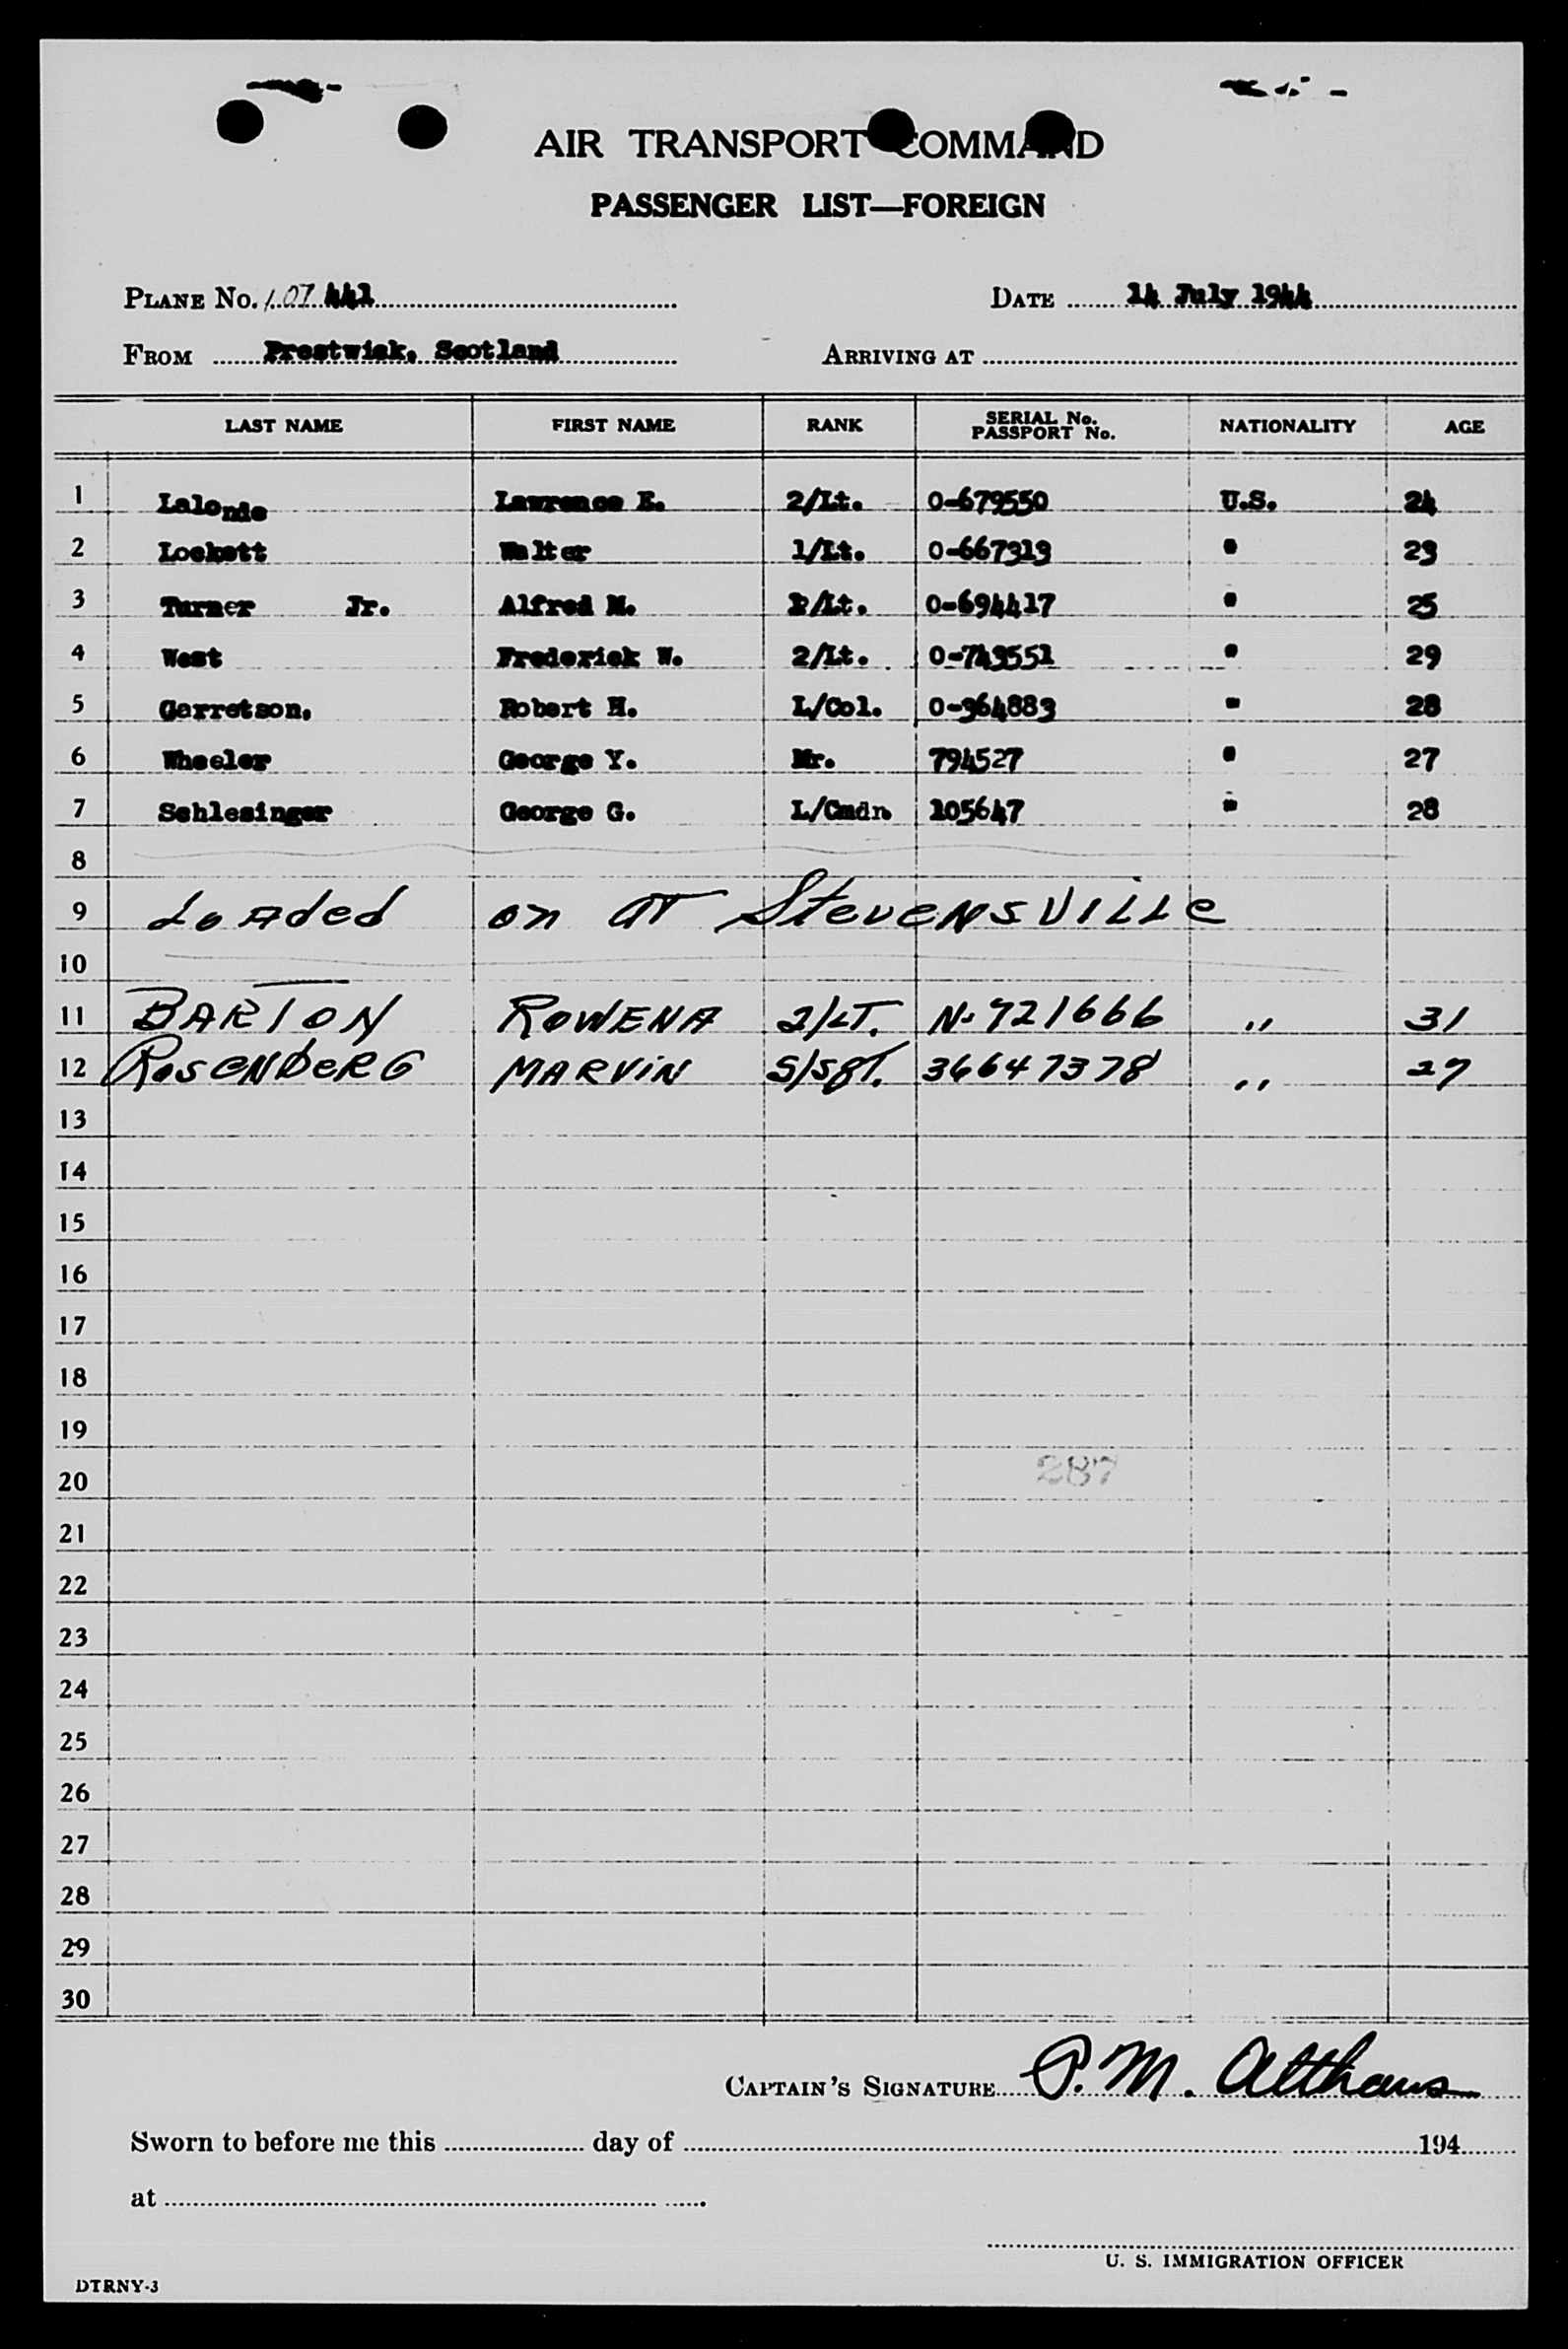 AIR TRANSPORT COMMAND
PASSENGER LIST—FOREIGN
PLANE No. 107 441 DATE 14 July 1944
FROM Prestwick, Scotland ARRIVING AT
LAST NAME FIRST NAME RANK SERIAL No. PASSPORT No. NATIONALITY AGE
1 Lalonde Lawrence E. 2/Lt. 0-679550 U.S. 24
2 Lockett Walter 1/Lt. 0-667313 " 23
3 Turner Jr. Alfred M. /Lt. 0-694417 " 25
4 West Frederick W. 2/Lt. 0-743551 " 29
5 Garretson, Robert H. L/Col. 0-364883 " 28
6 Wheeler George Y. Mr. 794527 " 27
7 Schlesinger George G. L/Cmdr. 105647 " 28
8
9 Loaded on AT Stevensville
10
11 BARTON ROWENA 2/LT. N-721666 " 31
12 ROSENBERG MARVIN S/Sgt. 36647378 " 27
13
14
15
16
17
18
19
287
20
21
22
23
24
25
26
27
28
29
30
CAPTAIN'S SIGNATURE P. M. Althaus
Sworn to before me this day of 194
at .
U. S. IMMIGRATION OFFICER
DTRNY-3